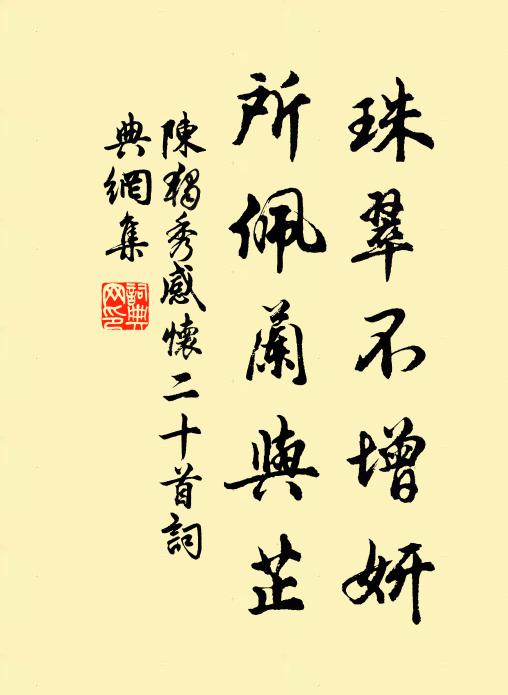 珠翠不增妍
所佩蘭與芷
陳獨秀感懷二十首詞
典網集
詞典
网印